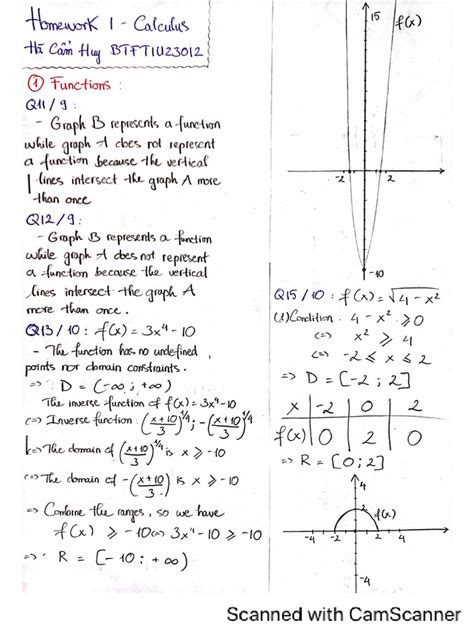 Homework 1 - Calculus
Hà Cẩm Huy BTFTIU23012
① Functions :
Q11/9 :
- Graph B represents a function
while graph A does not represent
a function because the vertical
lines intersect the graph A more
than once
Q12/9 :
- Graph B represents a function
while graph A does not represent
a function because the vertical
lines intersect the graph A
more than once .
Q13/10 : f(x) = 3x⁴ - 10
- The function has no undefined
points nor domain constraints .
=> D = (-∞ ; +∞)
The inverse function of f(x) = 3x⁴ - 10
(=) Inverse function : ((x+10)/3)^1/4 ; -((x+10)/3)^1/4
(=) The domain of ((x+10)/3)^1/4 is x ≥ -10
(=) The domain of -((x+10)/3) is x ≥ -10
=> Combine the ranges, so we have
f(x) ≥ -10 (=) 3x⁴ - 10 ≥ -10
=> R = [-10 ; +∞)
15
f(x)
-2
2
-10
Q15/10 : f(x) = √4 - x²
(1) Condition : 4 - x² ≥ 0
(=) x² ≥ 4
(=) -2 ≤ x ≤ 2
=> D = [-2 ; 2]
x | -2 | 0 | 2
f(x) | 0 | 2 | 0
=> R = [0 ; 2]
4
2
f(x)
-4 -2 2 4
-4
Scanned with CamScanner